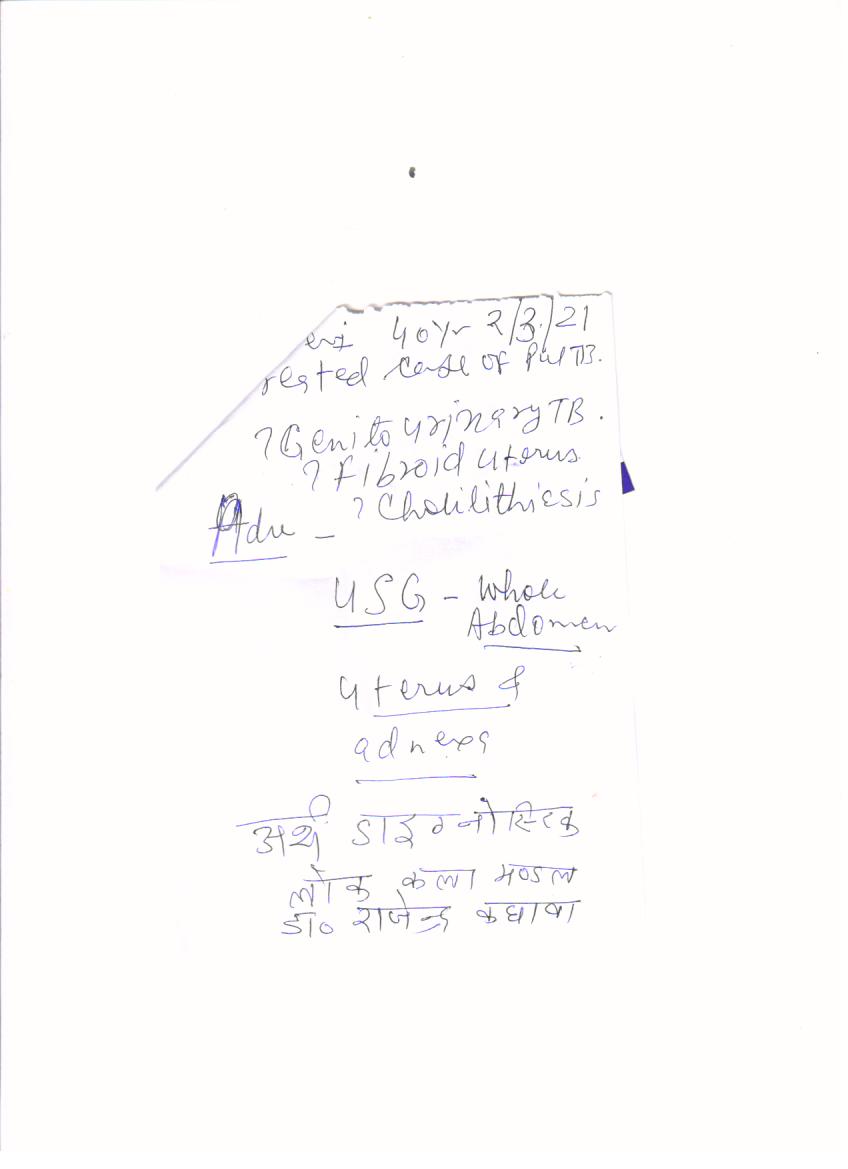 evi 40yr 2/3/21
rested case of Pul TB.
? Genitourinary TB.
? Fibroid uterus
? Cholilithiesis
Adv -
USG - Whole
Abdomen
uterus &
adnexa
अर्थ डाइग्नोस्टिक
लोक कला मण्डल
डा० राजेन्द्र कछावा